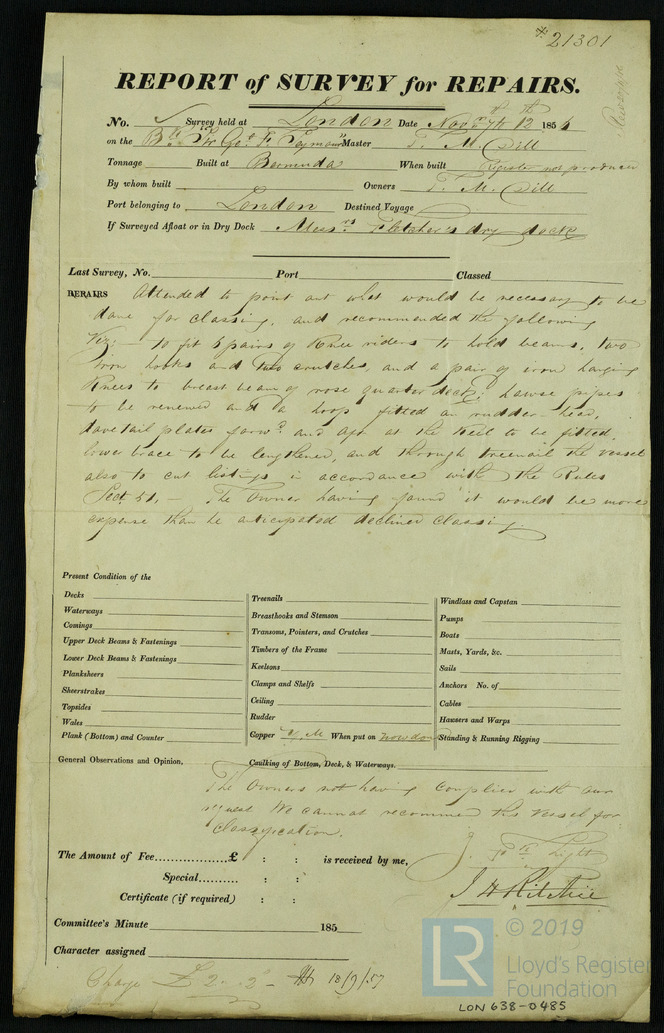 21301
REPORT of SURVEY for REPAIRS.
No. Survey held at London Date Nov 7th 12th 1856
on the Geo. F. Seymour Master T. M. Dill
Tonnage Built at Bermuda When built Register not produced
By whom built Owners T. M. Dill
Port belonging to London Destined Voyage
If Surveyed Afloat or in Dry Dock Messrs Fletcher's dry dock
Last Survey, No. Port Classed
REPAIRS Attended to point out what would be necessary to be
done for classing, and recommended the following
Viz:- To fit 6 pairs of Knee riders to hold beams, two
iron hooks and two crutches, and a pair of iron hanging
Knees to breast beam of rose quarter deck; hawse pipes
to be renewed and a hoop fitted on rudder head,
dovetail plates forwd. and aft at the keel to be fitted,
lower brace to be lengthened, and through treenail the vessel
also to cut listings in accordance with the Rules
Sect. 51, - The Owner having found it would be more
expense than he anticipated declined classing.
Present Condition of the
Decks
Waterways
Comings
Upper Deck Beams & Fastenings
Lower Deck Beams & Fastenings
Planksheers
Sheerstrakes
Topsides
Wales
Plank (Bottom) and Counter
Treenails
Breasthooks and Stemson
Transoms, Pointers, and Crutches
Timbers of the Frame
Keelsons
Clamps and Shelfs
Ceiling
Rudder
Copper Y. M When put on now done
Windlass and Capstan
Pumps
Boats
Masts, Yards, &c.
Sails
Anchors No. of
Cables
Hawsers and Warps
Standing & Running Rigging
General Observations and Opinion, Caulking of Bottom, Deck, & Waterways.
The Owners not having complied with our
request We cannot recommend this vessel for
classification.
The Amount of Fee...............£ : : is received by me,
Special.......... : :
Certificate (if required) : :
J H Ritchie
Committee's Minute 185
Character assigned
Charge £ 2.. 2 - 18/9/57
© 2019
LR
Lloyd's Register
Foundation
LON 638-0485